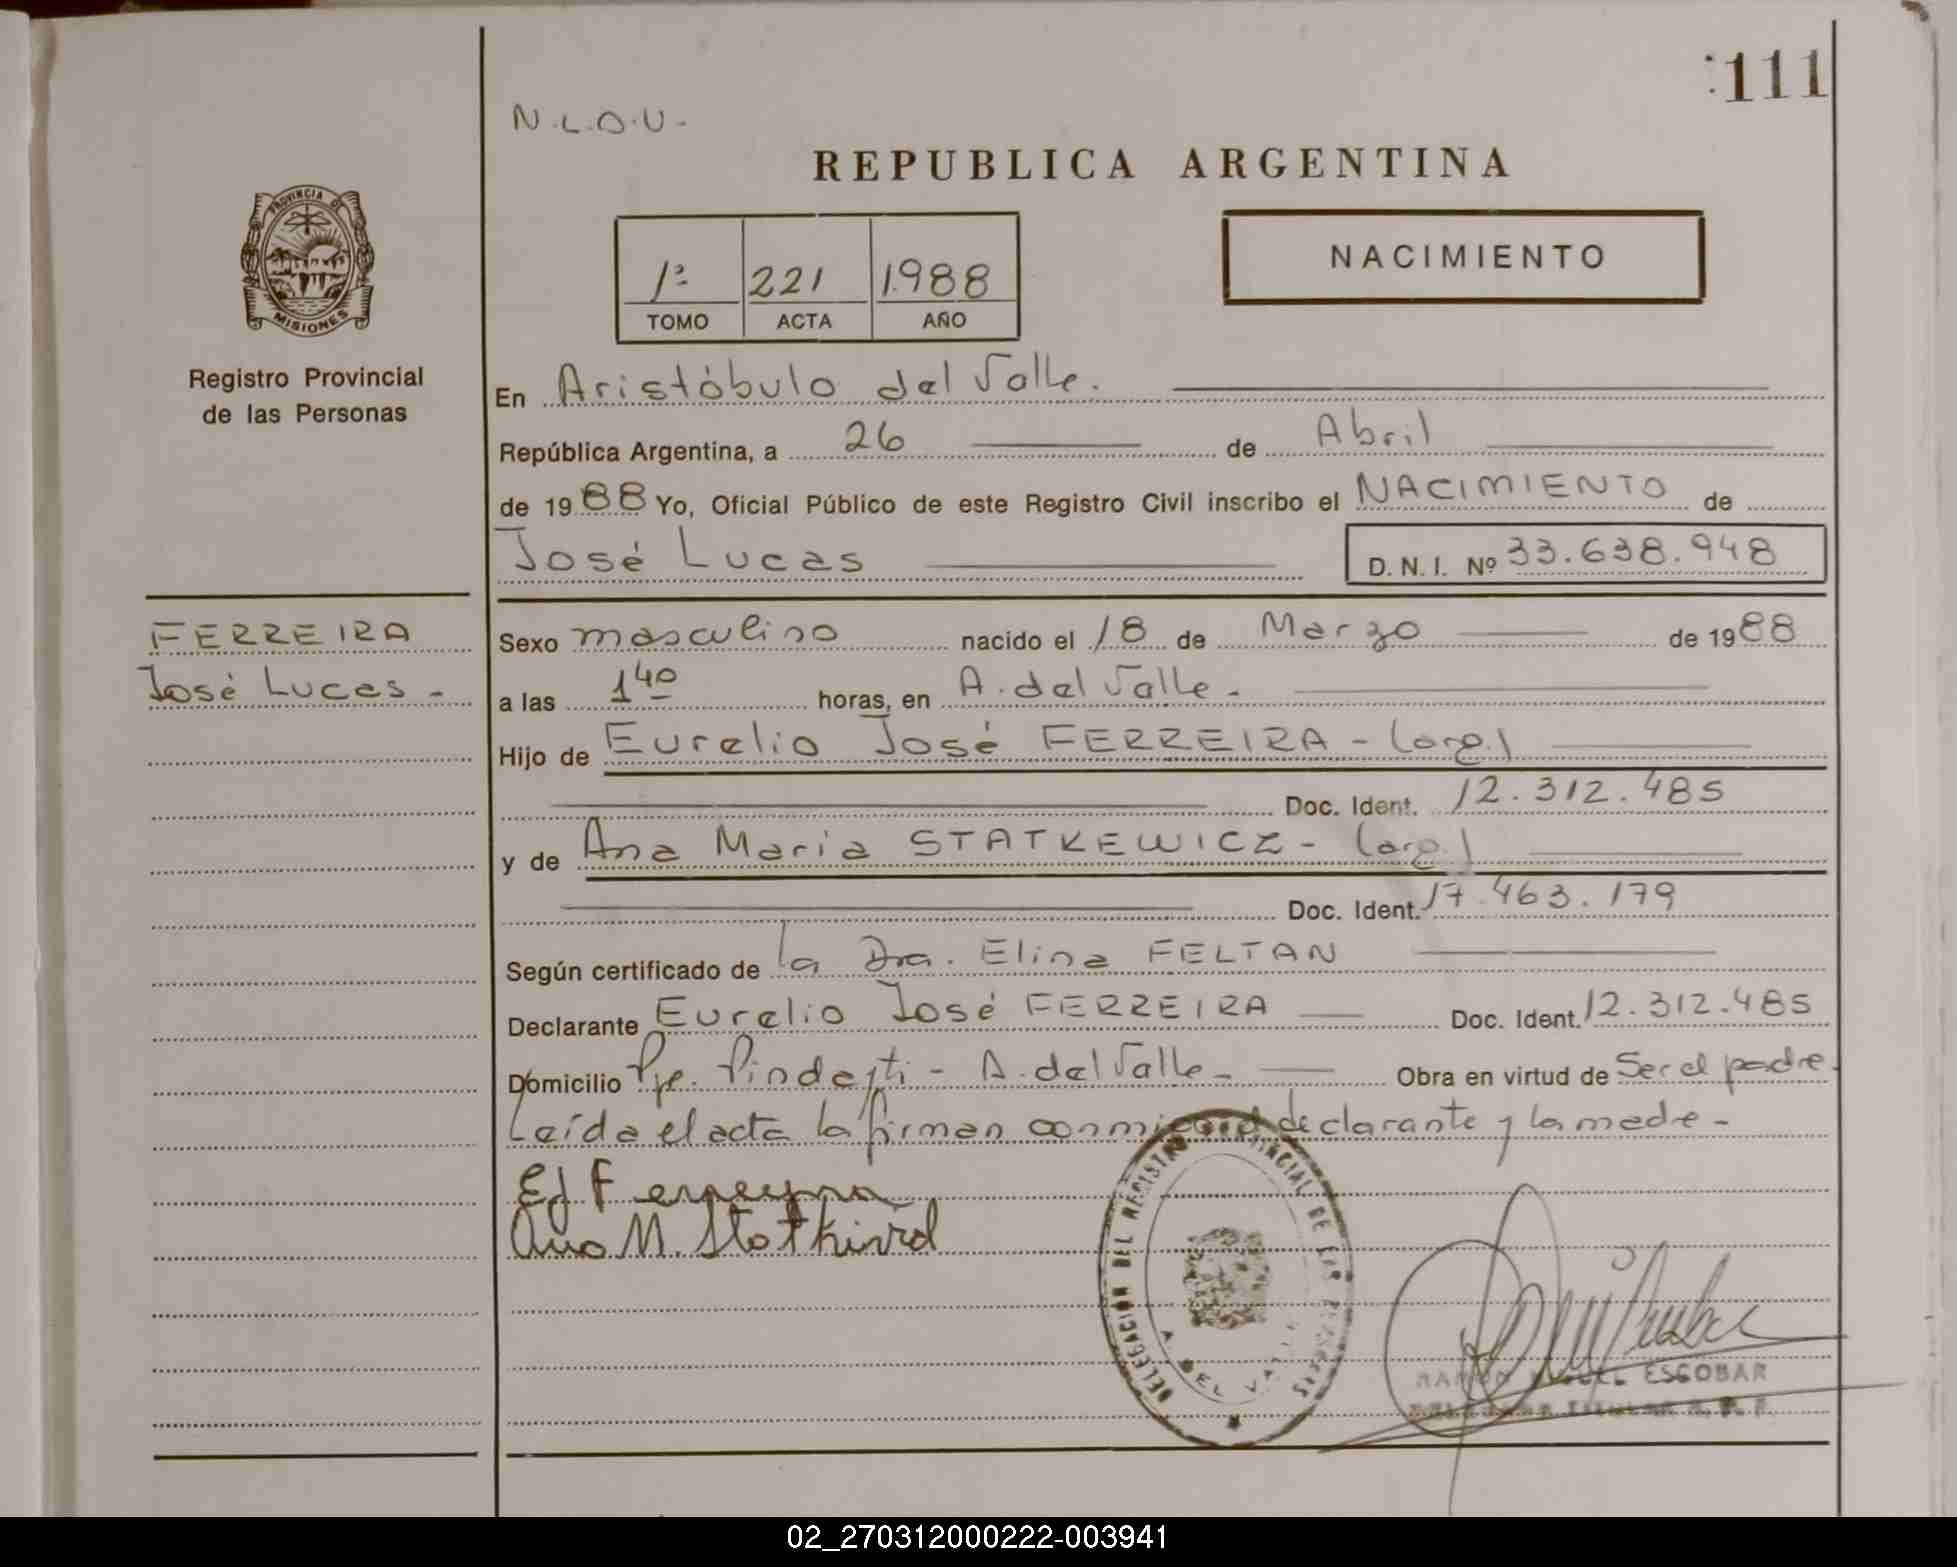 :111
N.L.O.U.-
REPUBLICA ARGENTINA
PROVINCIA DE
MISIONES
1º 221 1.988
TOMO ACTA AÑO
NACIMIENTO
Registro Provincial
de las Personas
En Aristóbulo del Valle.
República Argentina, a 26 de Abril
de 1988 Yo, Oficial Público de este Registro Civil inscribo el NACIMIENTO de
José Lucas
D. N. I. Nº 33.638.948
FERREIRA
José Lucas -
Sexo masculino nacido el 18 de Marzo de 1988
a las 1 40 horas, en A. del Valle -
Hijo de Eurelio José FERREIRA - (arg.)
Doc. Ident. 12.312.485
y de Ana Maria STATKEWICZ - (arg.)
Doc. Ident. 17.463.179
Según certificado de la Dra. Elina FELTAN
Declarante Eurelio José FERREIRA Doc. Ident. 12.312.485
Domicilio Pje. - A. del Valle - Obra en virtud de Ser el padre.
Leída el acta la firman conmigo el declarante y la madre -
EJ Ferreyra
Ana M.
DELEGACION DEL REGISTRO PROVINCIAL DE LAS PERSONAS
A. DEL VALLE
RAMON MIGUEL ESCOBAR
02_270312000222-003941